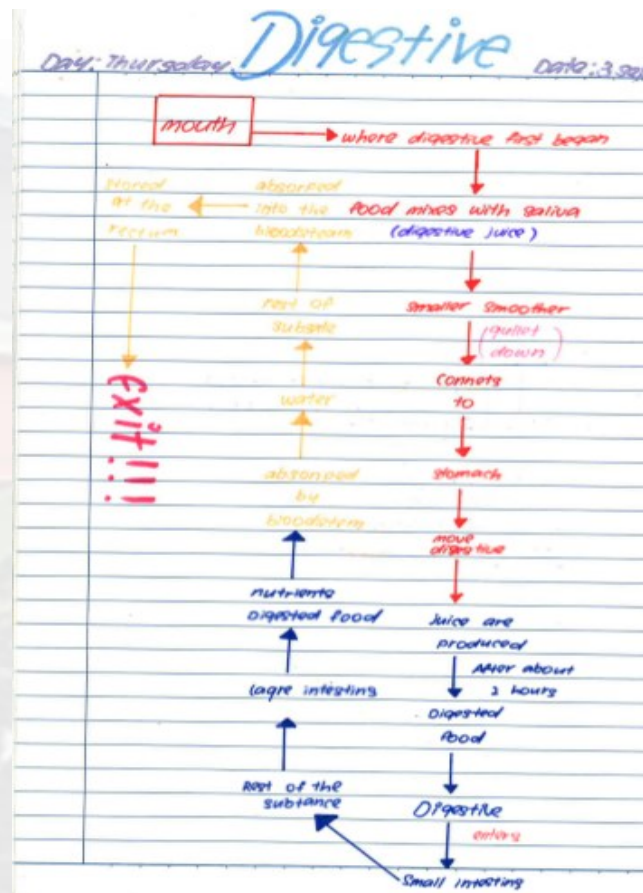 Digestive
Day: Thursday.
mouth
where digestive first began
food mixes with saliva
(digestive juice)
smaller smoother
(gullet
down)
connets
to
stomach
move
digestive
Juice are
produced
After about
2 hours
Digested
food
Digestive
enters
Small intesting
Rest of the
substance
laqre intesting
nutrients
Digested food
absorped
by
bloodstern
water
rest of
absorped
into the
bloodsteam
stored
at the
rectum
exit!!!